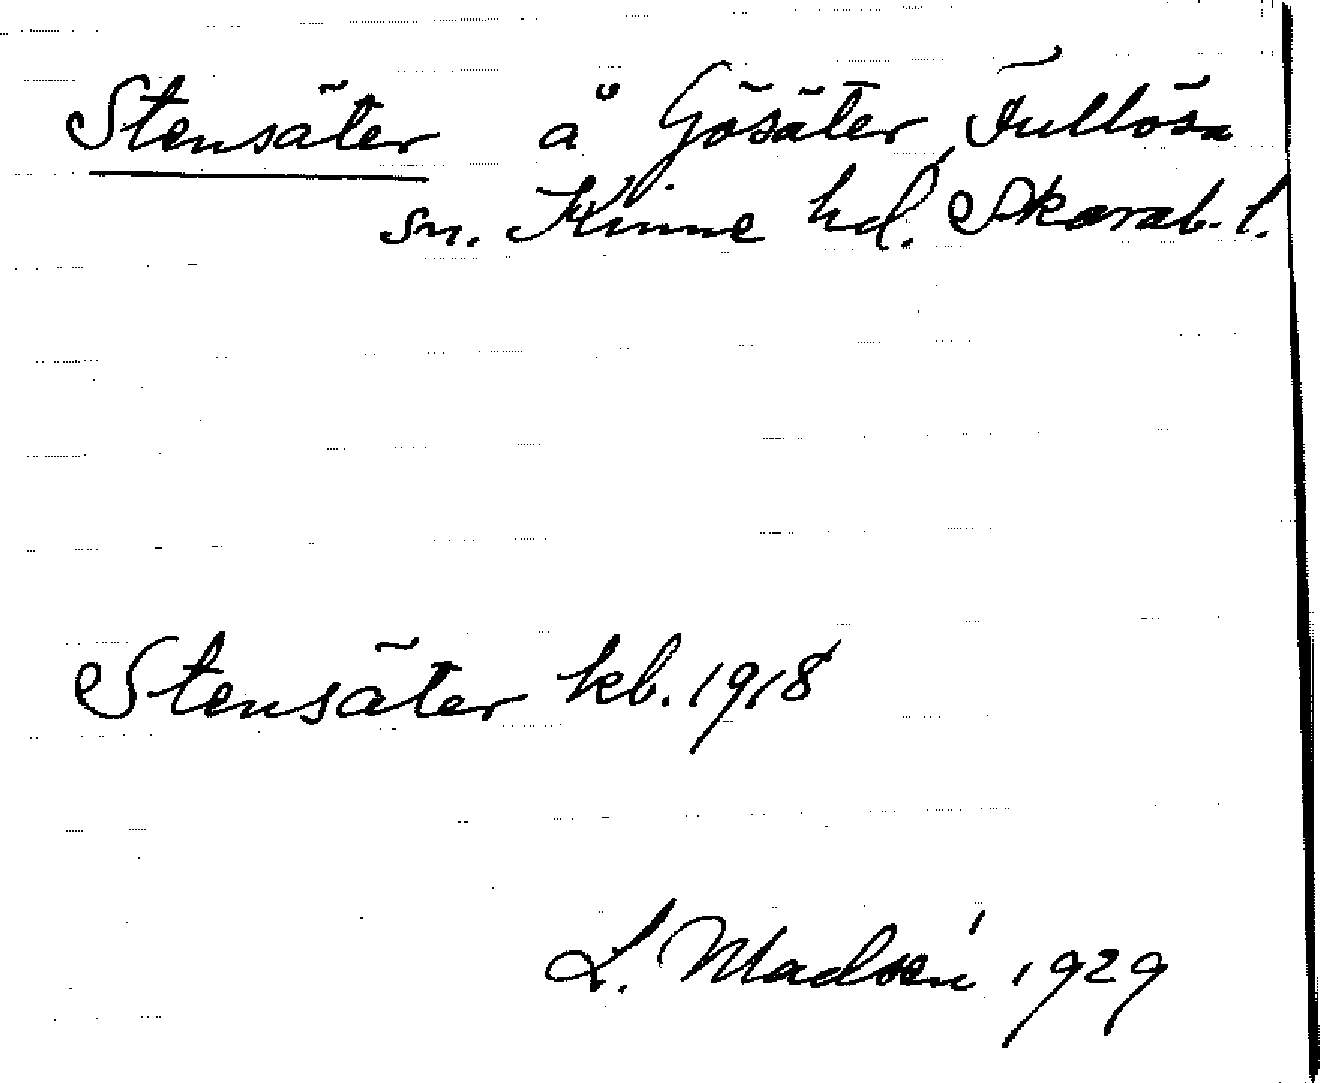 Stensäter å Gösäter Fullösa
sn. Kinne hd. Skarab. l.
Stensäter kb. 1918
L. Madsén 1929